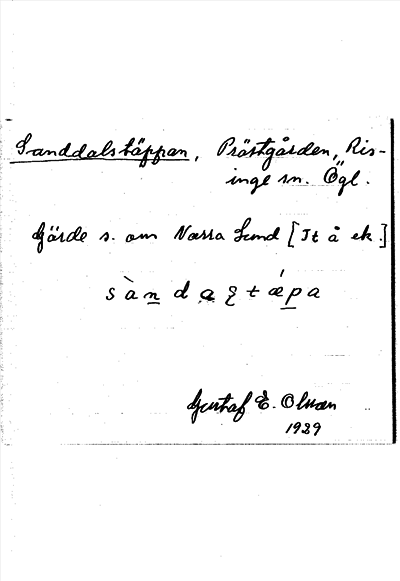 Sanddalstäppan, Prästgården, Ris-
inge sn. Ögl.
Gärde s. om Norra Lund [It å ek.]
sàndaʂtǽpa
Gustaf E. Olsson
1929